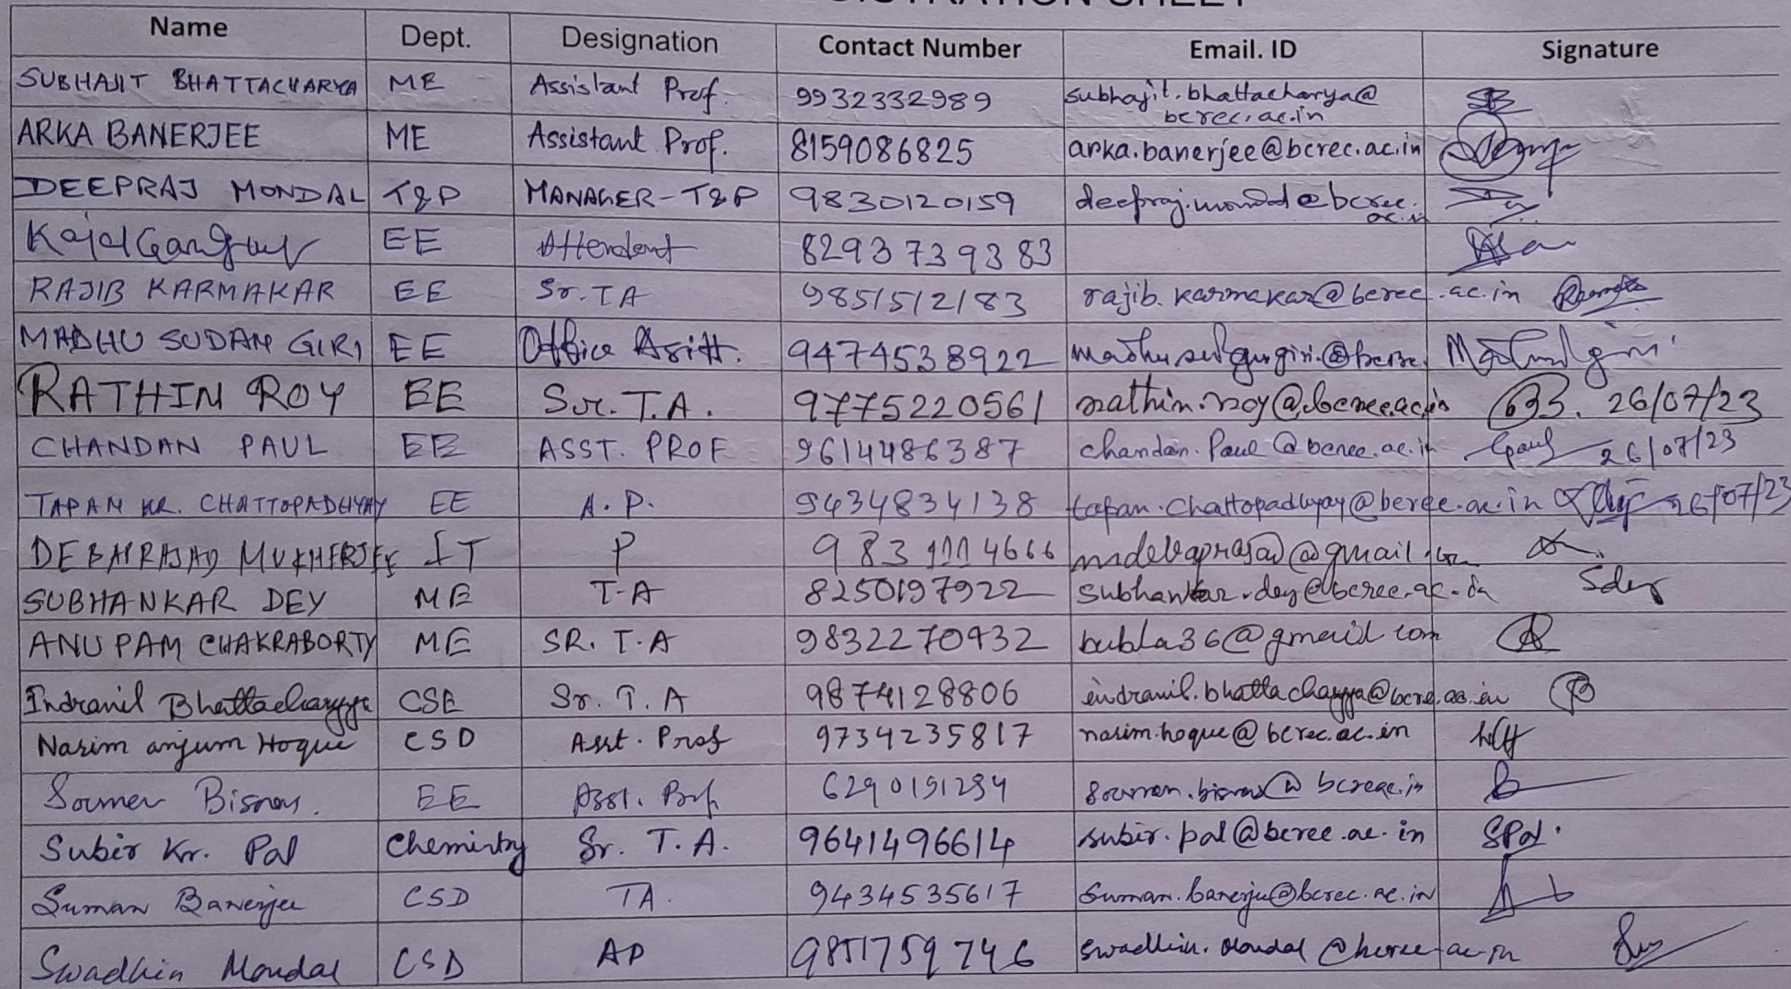 REGISTRATION SHEET
Name Dept. Designation Contact Number Email. ID Signature
SUBHAJIT BHATTACHARYA ME Assistant Prof. 9932332989 subhajit.bhattacharya@
bcrec.ac.in
ARKA BANERJEE ME Assistant Prof. 8159086825 arka.banerjee@bcrec.ac.in
DEEPRAJ MONDAL T&P MANAGER-T&P 9830120159 deepraj.mondal@bcrec.
ac.in
Kajal EE Attendent 8293739383
RAJIB KARMAKAR EE Sr.TA 9851512183 rajib.karmakar@bcrec.ac.in
MADHU SUDAN GIRI EE Office Asitt. 9474538922
RATHIN ROY EE Sr. T.A. 9775220561 rathin.roy@bcrec.ac.in 26/07/23
CHANDAN PAUL EE ASST. PROF 9614486387 chandan.paul@bcrec.ac.in 26/07/23
TAPAN KR. CHATTOPADHYAY EE A.P. 9434834138 tapan.chattopadhyay@bcrec.ac.in 26/07/23
MUKHERJEE IT P 983 4666
SUBHANKAR DEY ME T-A 8250197922 subhankar.dey@bcrec.ac.in Sdey
ANUPAM CHAKRABORTY ME SR. T.A 9832270932 bubla36@gmail com
Indranil Bhattacharyya CSE Sr. T.A 9874128806 indranil.bhattacharyya@bcrec.ac.in
Nasim anjum Hoque CSD Asst. Prof 9734235817 nasim.hoque@bcrec.ac.in
Soumen Biswas. EE Asst. Prof
Subir Kr. Pal Chemistry Sr. T.A. 9641496614 subir.pal@bcrec.ac.in SPal.
Suman Banerjee CSD TA. 9434535617 suman.banerjee@bcrec.ac.in
Swadhin Mondal CSD AP 9851759746 swadhin.mondal@bcrec.ac.in